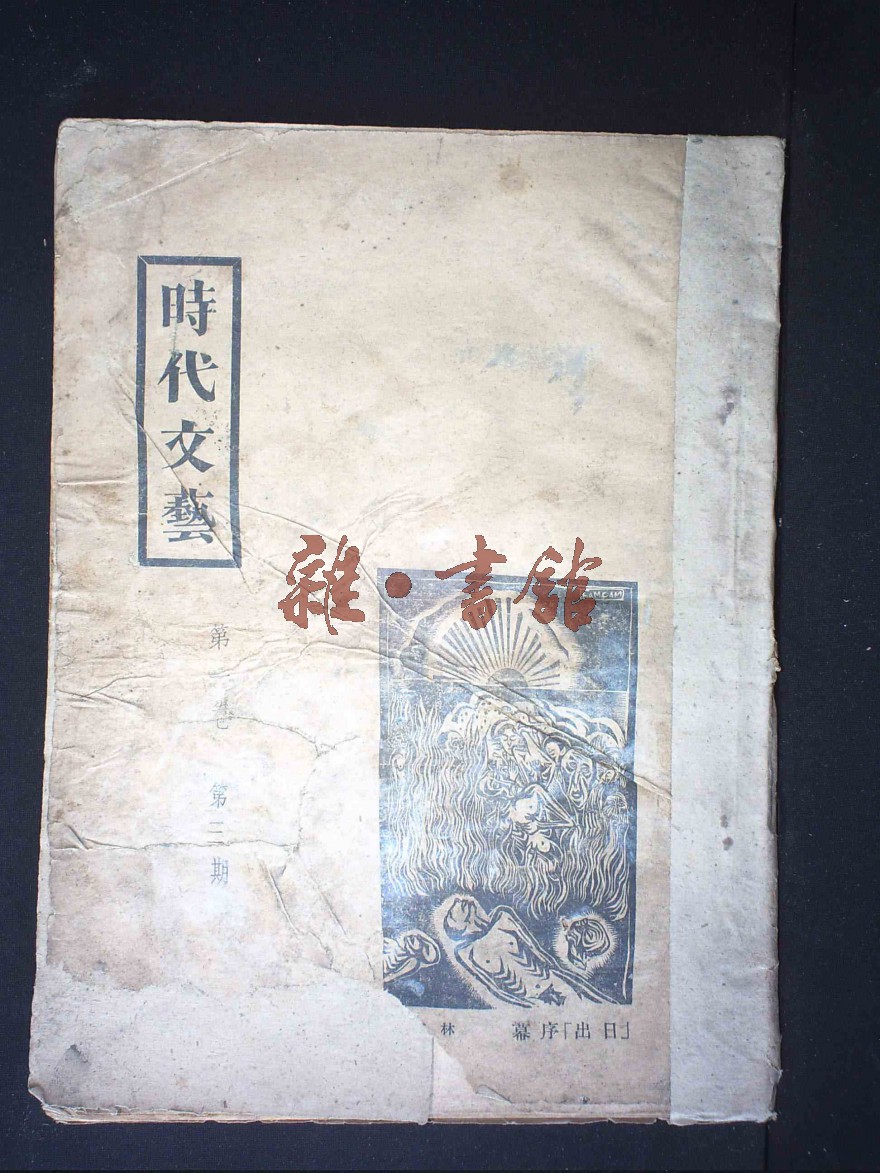 時代文藝
第一卷 第二期
雜·書館
「日出」序幕 林